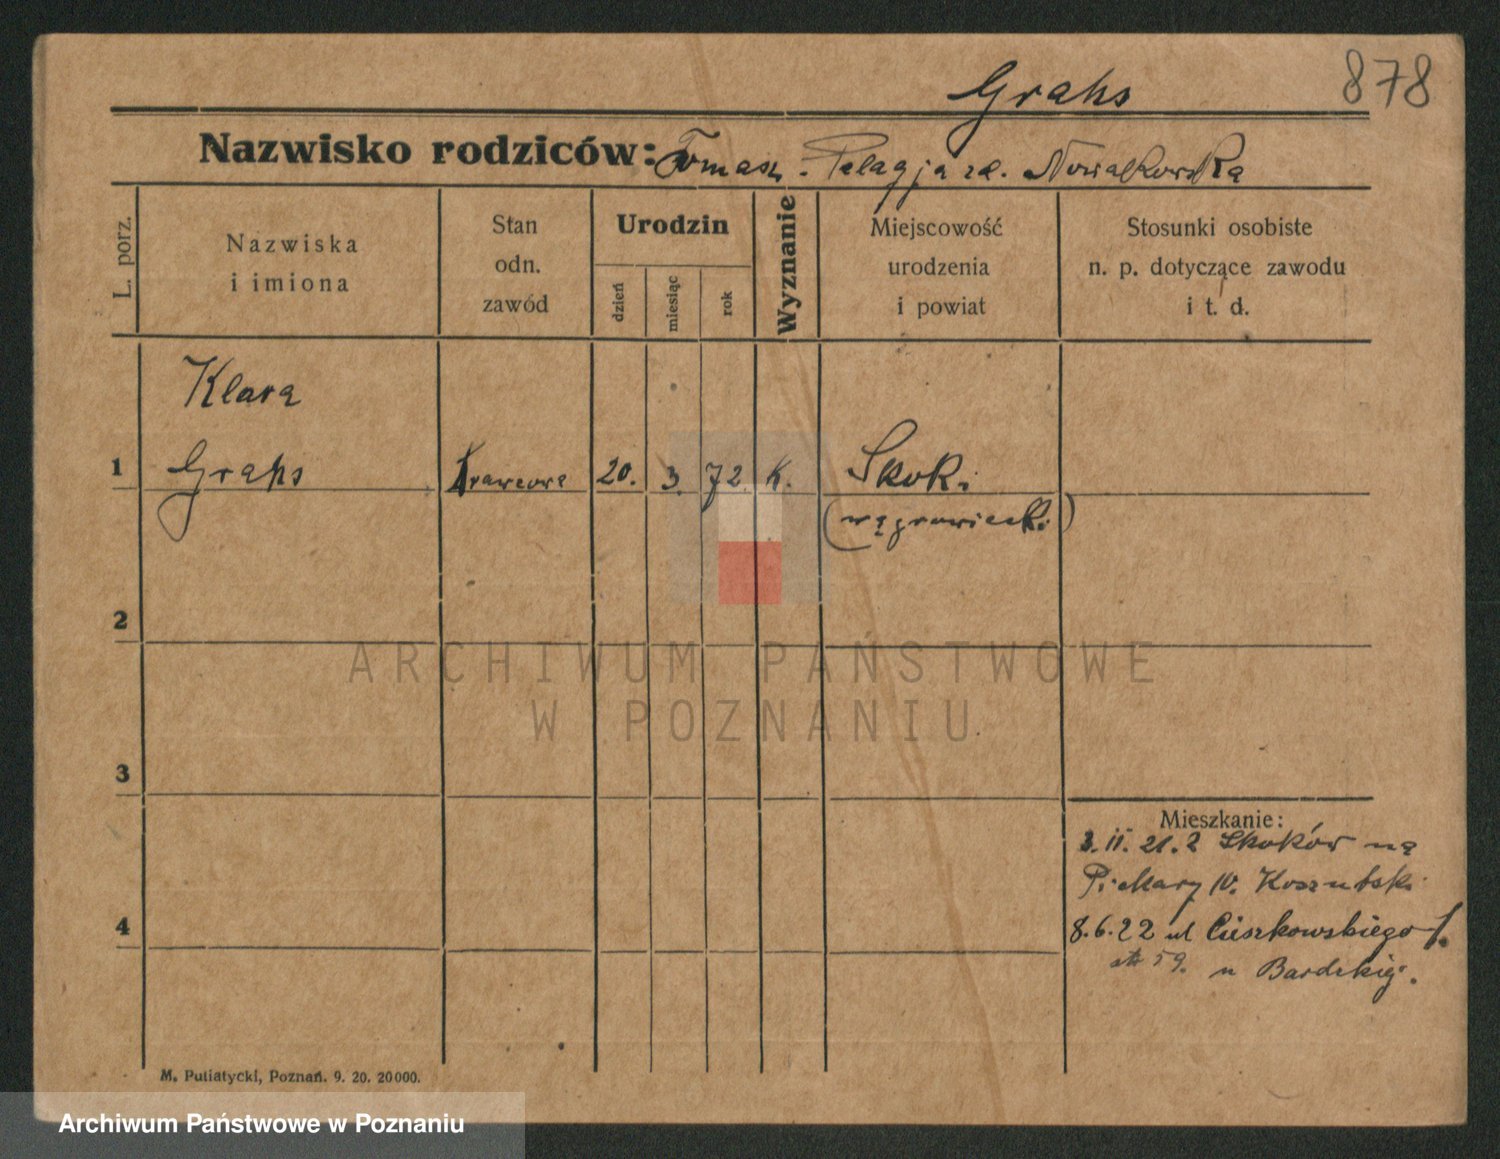 Grahs
878
Nazwisko rodziców: Tomasz - Pelagja zd. Nowakowska
L. porz.
Nazwiska
i imiona
Stan
odn.
zawód
Urodzin
dzień
miesiąc
rok
Wyznanie
Miejscowość
urodzenia
i powiat
Stosunki osobiste
n. p. dotyczące zawodu
i t. d.
Klara
1 Grahs Krawcowa 20. 3. 72 k. Skoki
(wągrowiecki)
2
ARCHIWUM PAŃSTWOWE
W POZNANIU
3
Mieszkanie:
3. II. 21. z Skoków na
Piekary IV. Koszutski
4
8.6.22 ul Cieszkowskiego
59. u
M. Putiatycki, Poznań. 9. 20. 20000.
Archiwum Państwowe w Poznaniu